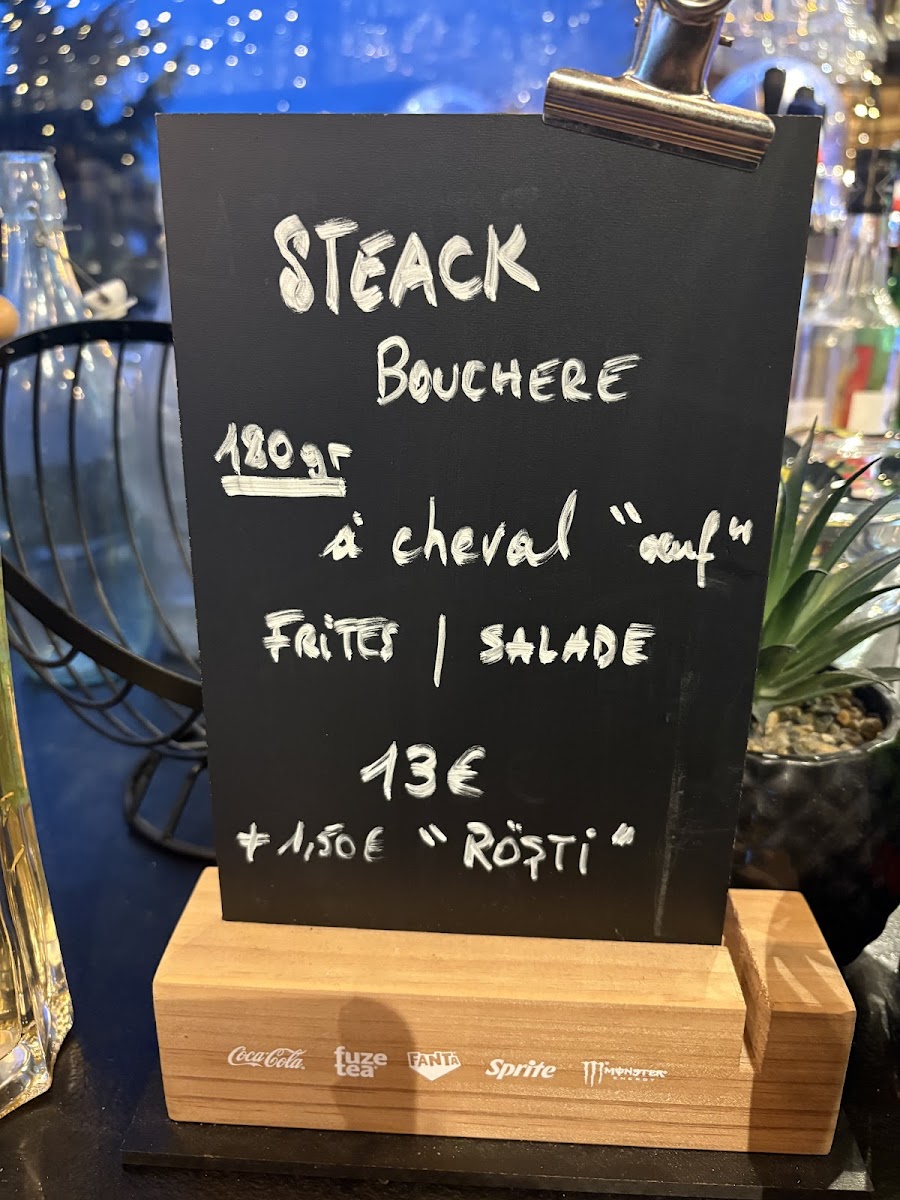 STEACK
BOUCHERE
180gr
à cheval "œuf"
FRITES | SALADE
13€
+ 1,50€ "RÖSTi"
Coca-Cola. fuze tea FANTA Sprite MONSTER ENERGY